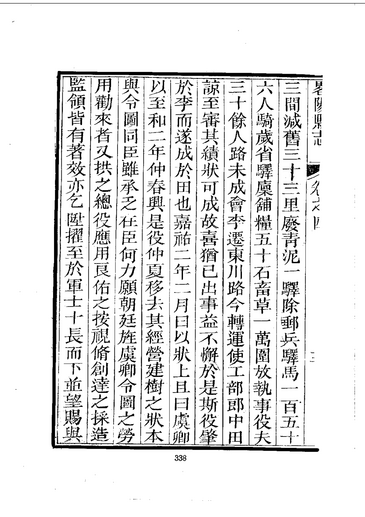 畧陽縣志
卷之四
三間減舊三十三里廢青泥一驛除郵兵驛馬一百五十
六人騎歲省驛廩舖糧五十石畜草一萬圍放執事役夫
三十餘人路未成會李遷東川路今轉運使工部郎中田
諒至審其績狀可成故喜猶已出事益不懈於是斯役肇
於李而遂成於田也嘉祐二年二月曰以狀上且曰虞卿
以至和二年仲春興是役仲夏移去其經營建樹之狀本
與令圖同臣雖承之在臣何力願朝廷旌虞卿令圖之勞
用勸來者又拱之總役應用良佑之按視脩創達之採造
監領皆有著效亦乞陞擢至於軍士十長而下並望賜與
338